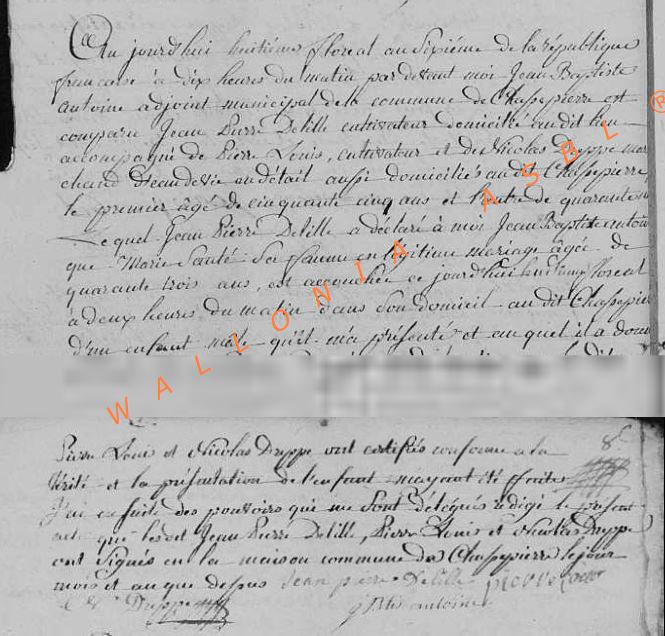 Au jourd'hui huitieme floreal an Sixiéme de la république
francaise à dix heures du matin par devant moi Jean Baptiste
antoine adjoint municipal de la commune de Chassepierre est
comparu Jean Pierre Delille cultivateur domicilié au dit lieu
accompagné de Pierre Louis, cultivateur et de Nicolas Dreppe mar
chand d'eau de vie en détail aussi domiciliés au dit Chassepierre
le premier âgé de cinquante cinq ans et l'autre de quarante
Lequel Jean Pierre Delille a déclaré à moi Jean Baptiste antoine
que Marie Santé Sa femme en légitime mariage âgée de
quarante trois ans, est accouchée ce jourd'hui huit floreal
à deux heures du matin dans Son domicil au dit Chassepierre
d'un enfant male qu'il m'a présenté et auquel il a donné
Pierre Louis et Nicolas Dreppe ont certifiés conforme a la
Vérité et la présentation de l'enfant mayant été faite
J'ai en suite des pouvoirs qui me Sont délégués rédigé le présent
acte que lesdit Jean Pierre Delille, Pierre Louis et Nicolas Dreppe
ont Signés en la maison commune de Chassepierre le jour
mois et an que dessus Jean pierre Delille pierre Louis
Dreppe
antoine
WALLONIA ASBL ®